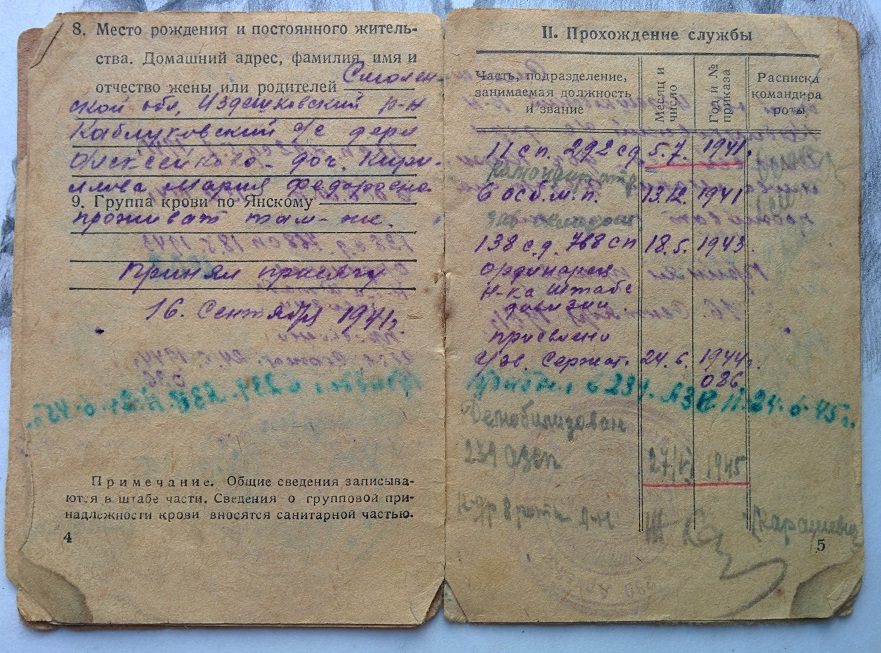 8. Место рождения и постоянного житель-
ства. Домашний адрес, фамилия, имя и
отчество жены или родителей Смолен-
ской обл, Издешковский р-н
Каблуковский с/с дерв
доч. Кири-
лова Мария Федоровна
9. Группа крови по Янскому
проживат там-же.
Принял присягу
16. Сентября 1941г.
Примечание. Общие сведения записыва-
ются в штабе части. Сведения о групповой при-
надлежности крови вносятся санитарной частью.
4
II. Прохождение службы
Часть, подразделение,
занимаемая должность
и звание
Месяц и
число
Год и №
приказа
Расписка
командира
роты
11 сп. 292 сд. 5.7. 1941.
командир отд
6 осв. м. п. 13.12. 1941
138 с.д. 768 сп 18.5. 1943.
ординарец
Н-ка штаба
дивизии
присвоено
Сержат. 24.6. 1944г.
086
Прибыл в 231. АЗСП. 24.6.45г.
Демобилизован
231 АЗСП 27/VI 1945
К-др 8 роты
5